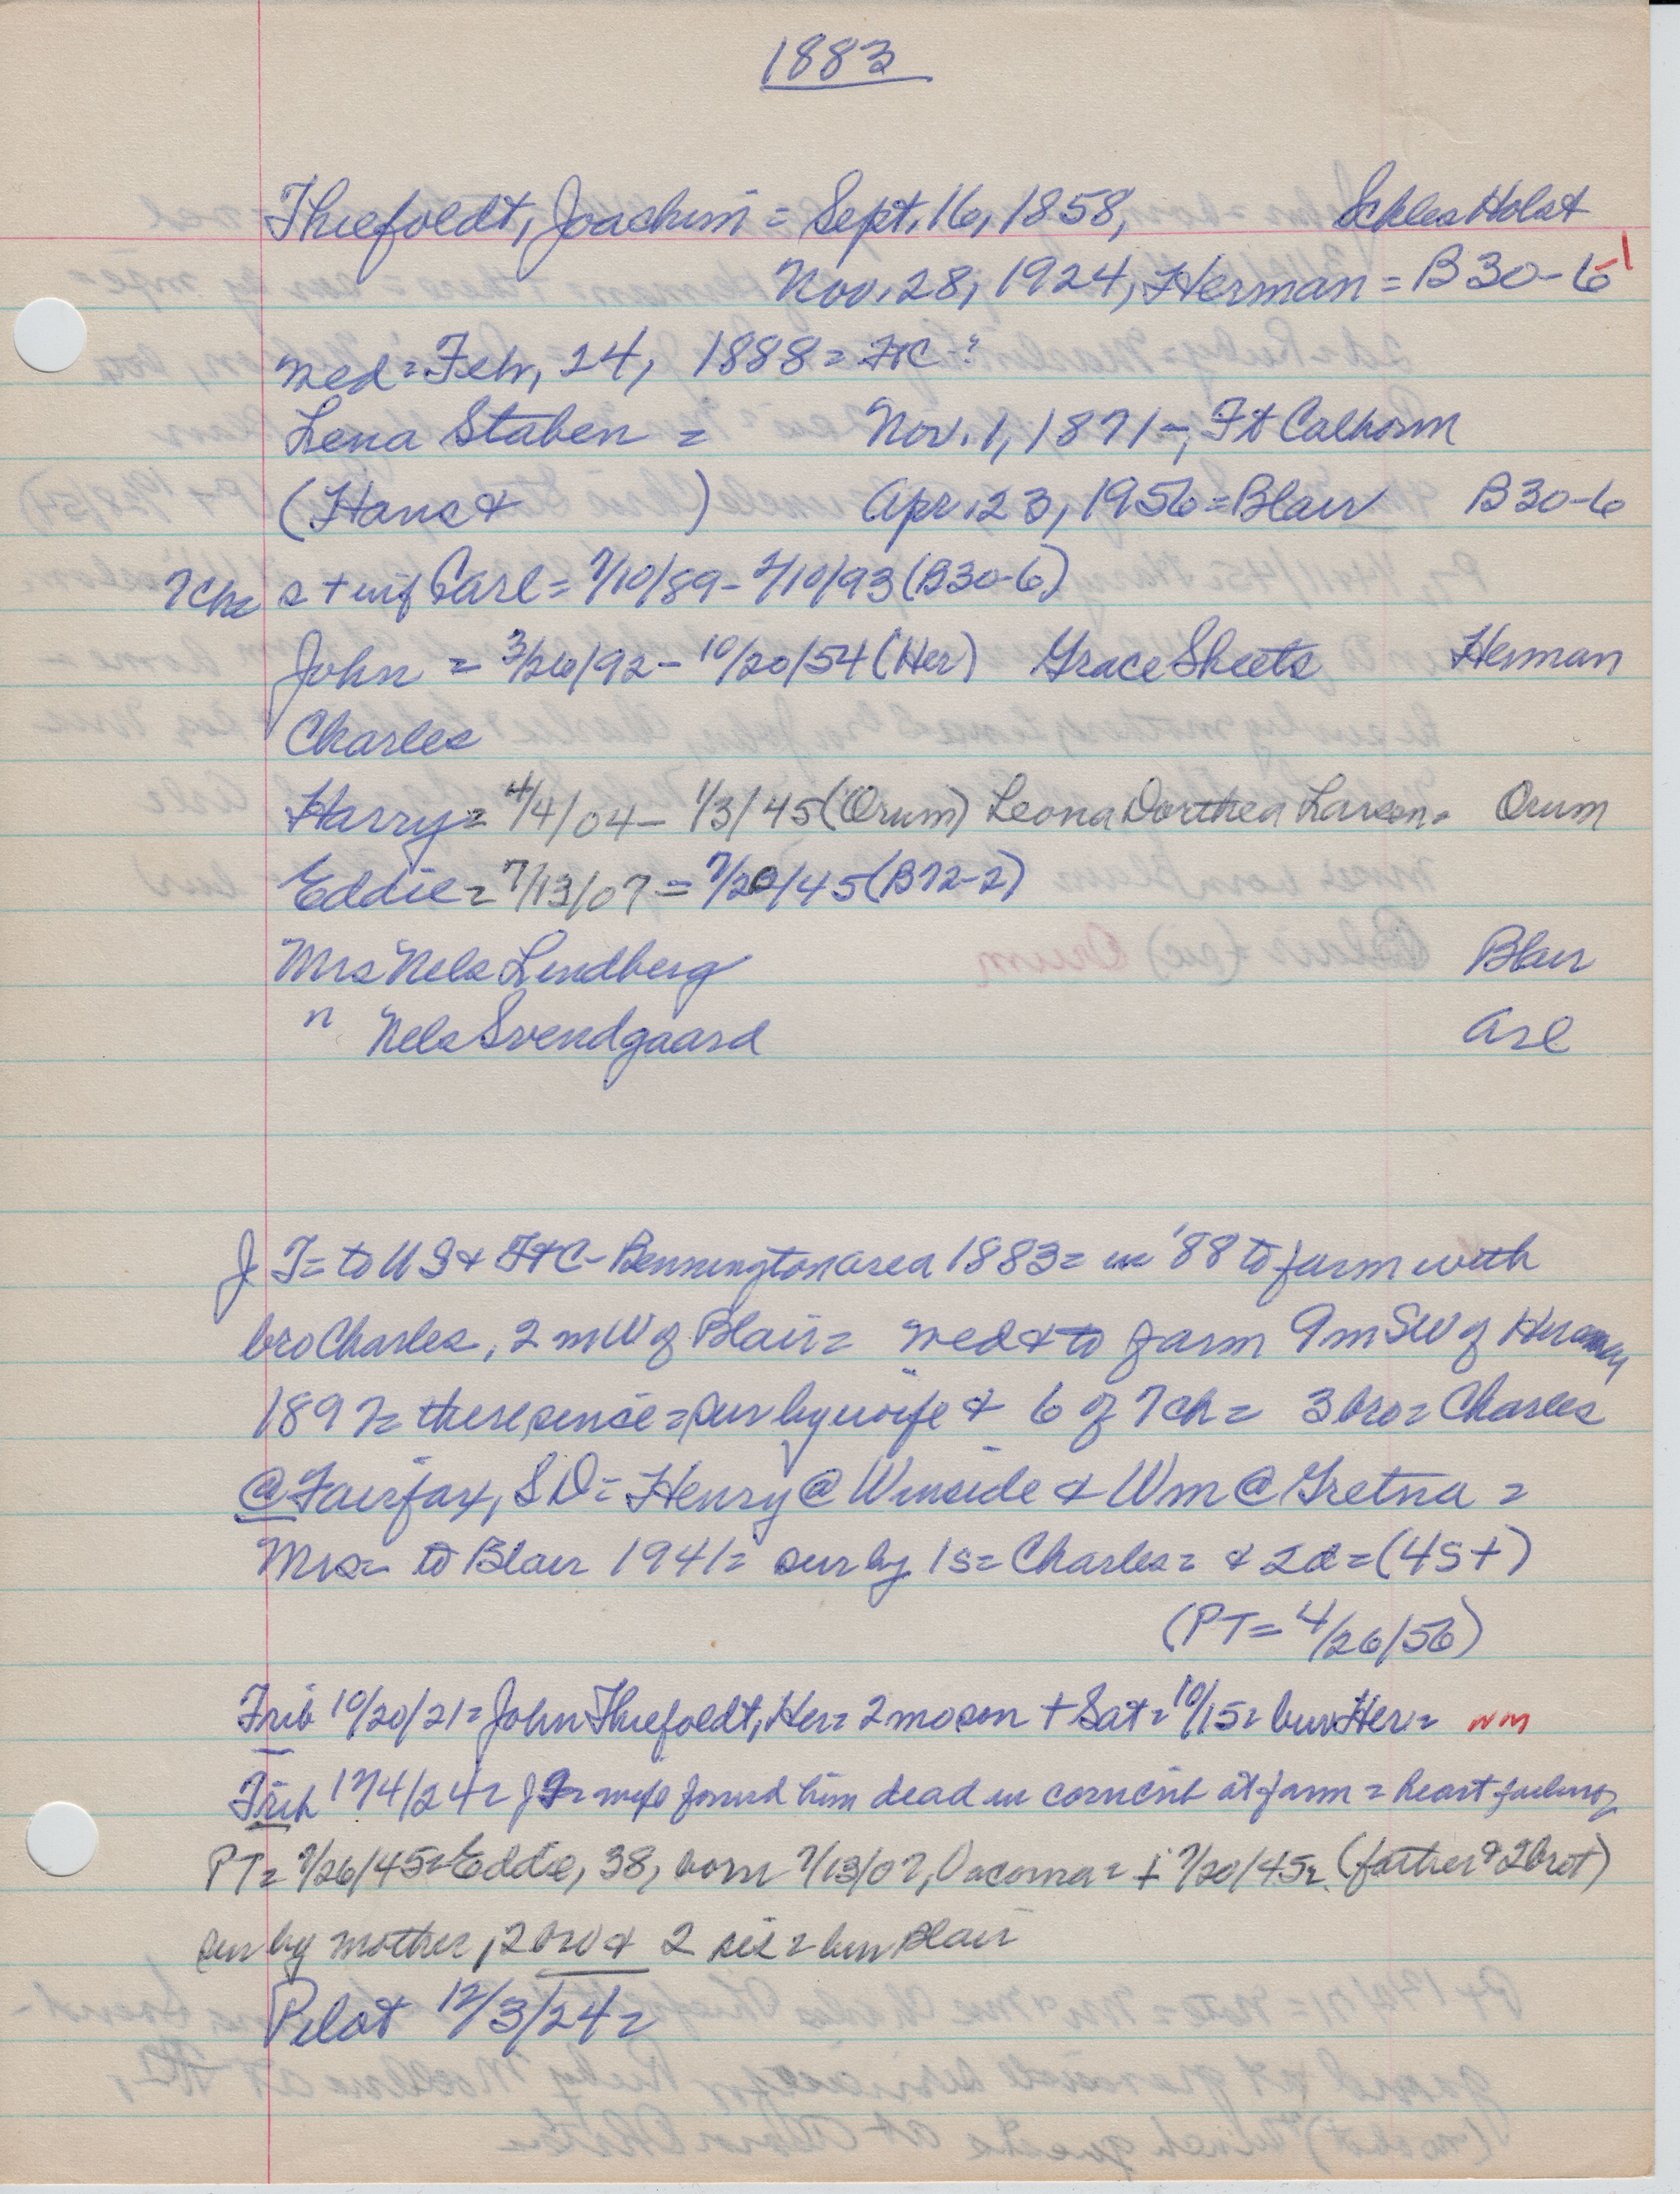 1883
Thiefoldt, Joachim = Sept. 16, 1858, Schles Holst
Nov. 28, 1924, Herman = B30-6
med = Feb, 24, 1888 = FtC-?
Lena Staben = Nov. 1, 1871-, Ft Calhoun
(Hans & ) Apr. 23, 1956 = Blair B30-6
7ch= s + inf Carl = 7/10/89 - 2/10/93 (B30-6)
John = 3/26/92 - 10/20/54 (Her) Grace Sheets Herman
Charles
Harry = 4/4/04 - 1/3/45 (Orum) Leona Dorthea Larsen. Orum
Eddie = 7/13/07 = 7/20/45 (B72-2)
Mrs Nels Lindberg Blair
" Nels Svendgaard Arl
J T = to US & FtC - Bennington area 1883 = in '88 to farm with
bro Charles, 2 mW of Blair = med & to farm 9m SW of Herman
1897 = there since = sur by wife & 6 of 7 ch = 3 bro = Charles
@ Fairfax, SD = Henry @ Winside & Wm @ Gretna =
Mrs = to Blair 1941 = sur by 1s = Charles = & 2d = (4s+)
(PT = 4/26/56)
Trib 10/20/21 = John Thiefoldt, Her = 2 mo son + Sat = 10/15 = bur Her = nm
Trib 12/4/24 = J T = wife found him dead in corncrib at farm = heart failure
PT = 7/26/45 = Eddie, 38, born 7/13/07, Dacoma = + 7/20/45 = (father & 2 bro+)
sur by mother, 2 bro & 2 sis = bur Blair
Pilot 12/3/24 =